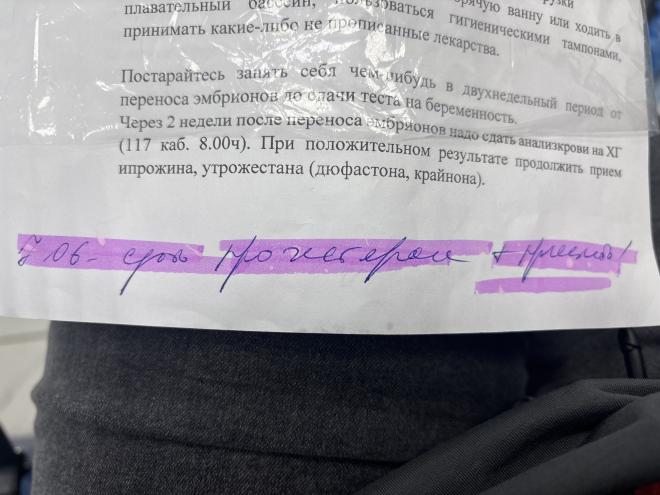 плавательный бассейн, пользоваться гигиеническими тампонами,
горячую ванну или ходить в
принимать какие-либо не прописанные лекарства.
Постарайтесь занять себя чем-нибудь в двухнедельный период от
переноса эмбрионов до сдачи теста на беременность.
Через 2 недели после переноса эмбрионов надо сдать анализкрови на ХГ
(117 каб. 8.00ч). При положительном результате продолжить прием
ипрожина, утрожестана (дюфастона, крайнона).
06 - прогестерон +